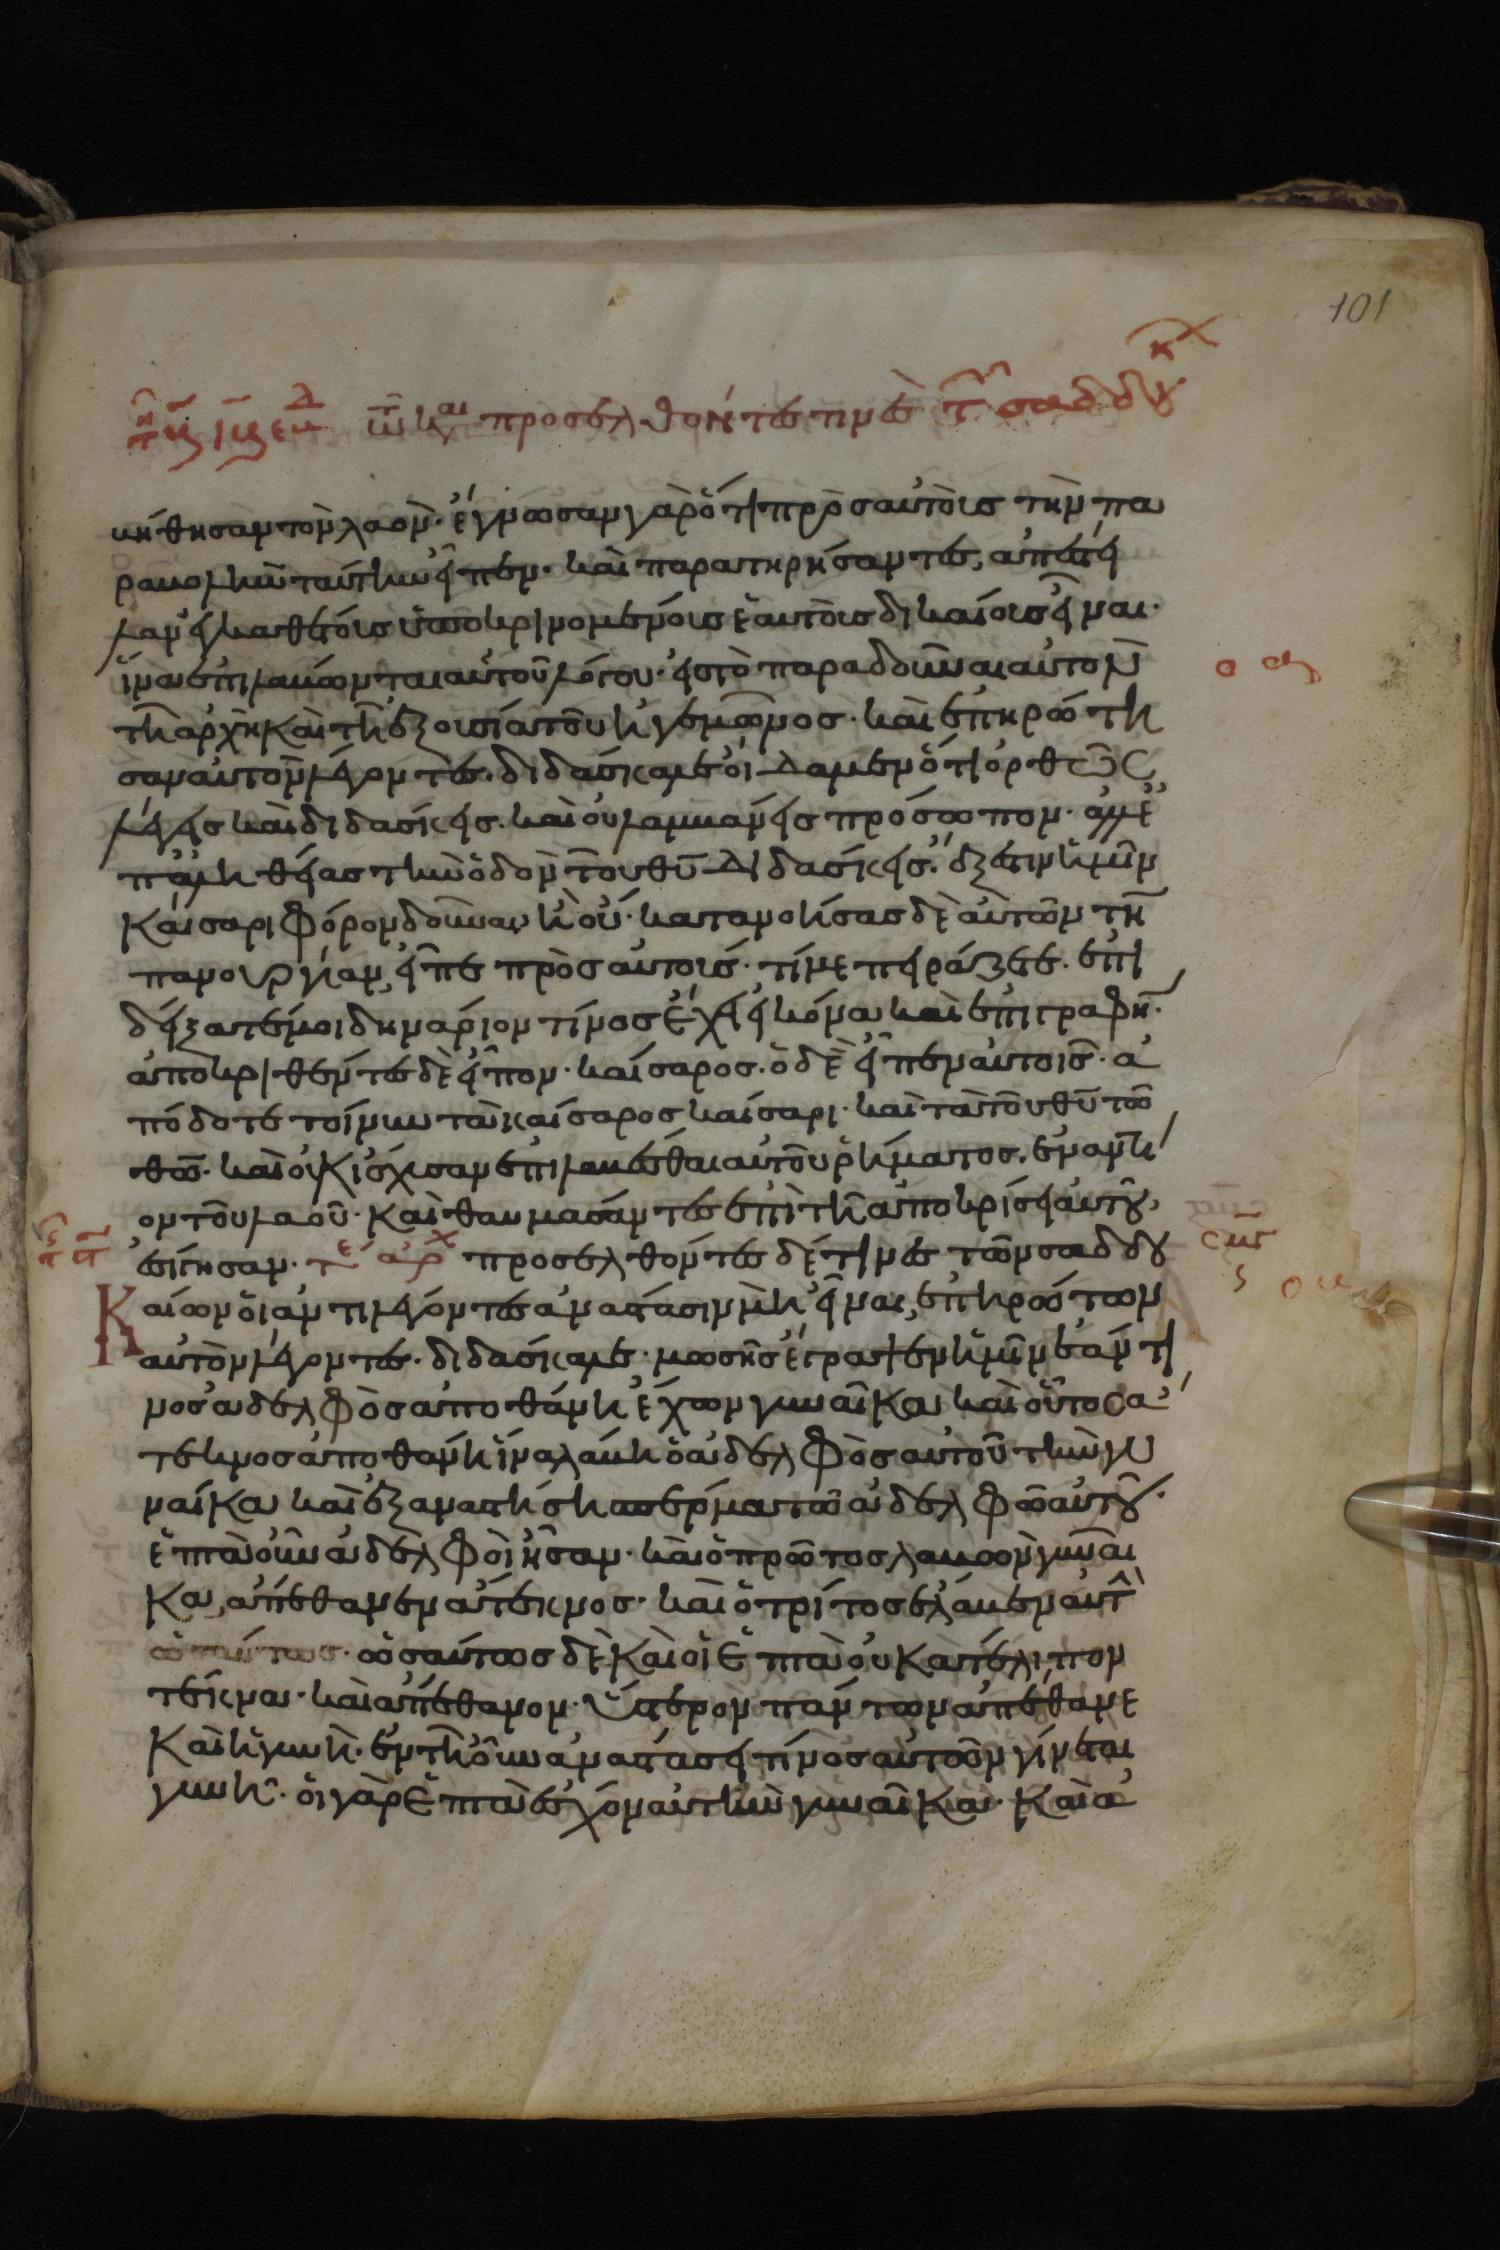 101
προσελθόντες τινες τ σαδδου κ
βήθησαν τὸν λαὸν· ἔγνωσαν γὰρ ὅτι πρὸς αὐτοὺς τὴν πα
ραβολὴν ταύτην εἶπεν· καὶ παρατηρήσαντες, ἀπέστει
λαν ἐγκαθέτους ὑποκρινομένους ἑαυτοὺς δικαίους εἶναι·
ἵνα ἐπιλάβωνται αὐτοῦ λόγου· εἰς τὸ παραδοῦναι αὐτὸν
τῆ ἀρχῆ καὶ τῆ ἐξουσία τοῦ ἡγεμῶνος· καὶ ἐπηρώτη
σαν αὐτὸν λέγοντες· διδάσκαλε οἴδαμεν ὅτι ὀρθῶς
λέγεις καὶ διδάσκεις· καὶ οὐ λαμβάνεις πρόσωπον· ἀλλ' ἐ
π' ἀληθείας τὴν ὁδὸν τοῦ θῦ διδάσκεις· ἔξεστιν ἡμῖν
Καίσαρι φόρον δοῦναι ἢ οὔ· κατανοήσας δὲ αὐτῶν τὴν
πανουργίαν, εἶπε πρὸς αὐτούς· τί με πειράζετε· ἐπι
δείξατέ μοι δηνάριον τίνος ἔχει εἰκόνα καὶ ἐπιγραφήν·
ἀποκριθέντες δὲ εἶπον· καίσαρος· ὁ δὲ εἶπεν αὐτοῖς· ἀ
πόδοτε τοίνυν τὰ καίσαρος καίσαρι· καὶ τὰ τοῦ θῦ τῶ
θῶ· καὶ οὐκ ἴσχυσαν ἐπιλαβέσθαι αὐτοῦ ῥήματος· ἐναντί
ον τοῦ λαοῦ· καὶ θαυμάσαντες ἐπὶ τῆ ἀποκρίσει αὐτοῦ,
ἐσίγησαν· τε αρχ προσελθόντες δέ τινες τῶν σαδδου
Καίων οἱ ἀντιλέγοντες ἀνάστασιν μὴ εἶναι, ἐπηρώτων
αὐτὸν λέγοντες· διδάσκαλε· μωσῆς ἔγραψεν ἡμῖν ἐάν τι
νος ἀδελφὸς ἀποθάνη ἔχων γυναῖκα καὶ οὗτος ἄ
τεκνος ἀποθάνη ἵνα λάβη ὁ ἀδελφὸς αὐτοῦ τὴν γυ
ναίκα καὶ ἐξαναστήση σπέρμα τῶ ἀδελφῶ αὐτοῦ·
ἑπτὰ οὖν ἀδελφοὶ ἦσαν· καὶ ὁ πρῶτος λαβὼν γυναῖ
κα, ἀπέθανεν ἄτεκνος· καὶ ὁ τρίτος ἔλαβεν αὐτ
ὡσαύτως· ὡσαύτως δὲ καὶ οἱ ἑπτὰ οὐ κατέλιπον
τέκνα· καὶ ἀπέθανον· ὕστερον πάντων ἀπέθανε
καὶ ἡ γυνή· ἐν τῆ οὖν ἀναστάσει τίνος αὐτῶν γίνεται
γυνή· οἱ γὰρ ἑπτὰ ἔσχον αὐτὴν γυναῖκα· καὶ ἀ